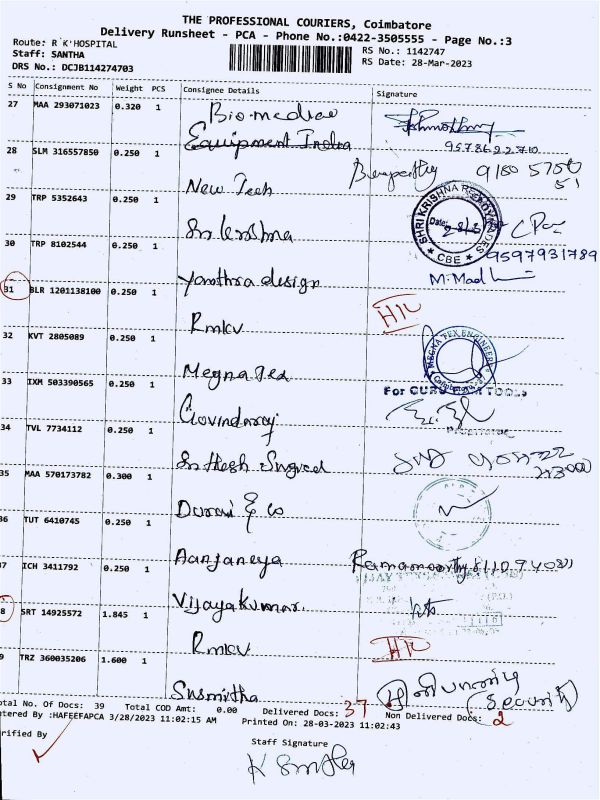 THE PROFESSIONAL COURIERS, Coimbatore
Delivery Runsheet - PCA - Phone No.:0422-3505555 - Page No.:3
Route: R K'HOSPITAL
Staff: SANTHA
DRS No.: DCJB114274703
RS No.: 1142747
RS Date: 28-Mar-2023
S No Consignment No Weight PCS Consignee Details Signature
27 MAA 293071023 0.320 1 Bio-medical
Equipment India
28 SLM 316557850 0.250 1
New Tech
29 TRP 5352643 0.250 1
Sri krishna
SHRI KRISHNA
Date:
CBE
30 TRP 8102544 0.250 1 9597931789
yanthra design M.Madh
31 BLR 1201138100 0.250 1
Rmkv
32 KVT 2805089 0.250 1
MEGNA TEX ENGINEERS
Megna Tex
33 IXM 503390565 0.250 1 For GURU TOOLS
Govindaraj
34 TVL 7734112 0.250 1
35 MAA 570173782 0.300 1
Durai & Co
36 TUT 6410745 0.250 1
Aanjaneya
37 ICH 3411792 0.250 1
Vijayakumar
38 SRT 14925572 1.845 1
Rmkv
39 TRZ 360035206 1.600 1
Susmitha (Security)
Total No. Of Docs: 39 Total COD Amt: 0.00 Delivered Docs: 37 Non Delivered Docs: 2
Entered By :HAFEEFAPCA 3/28/2023 11:02:15 AM Printed On: 28-03-2023 11:02:43
Verified By
Staff Signature